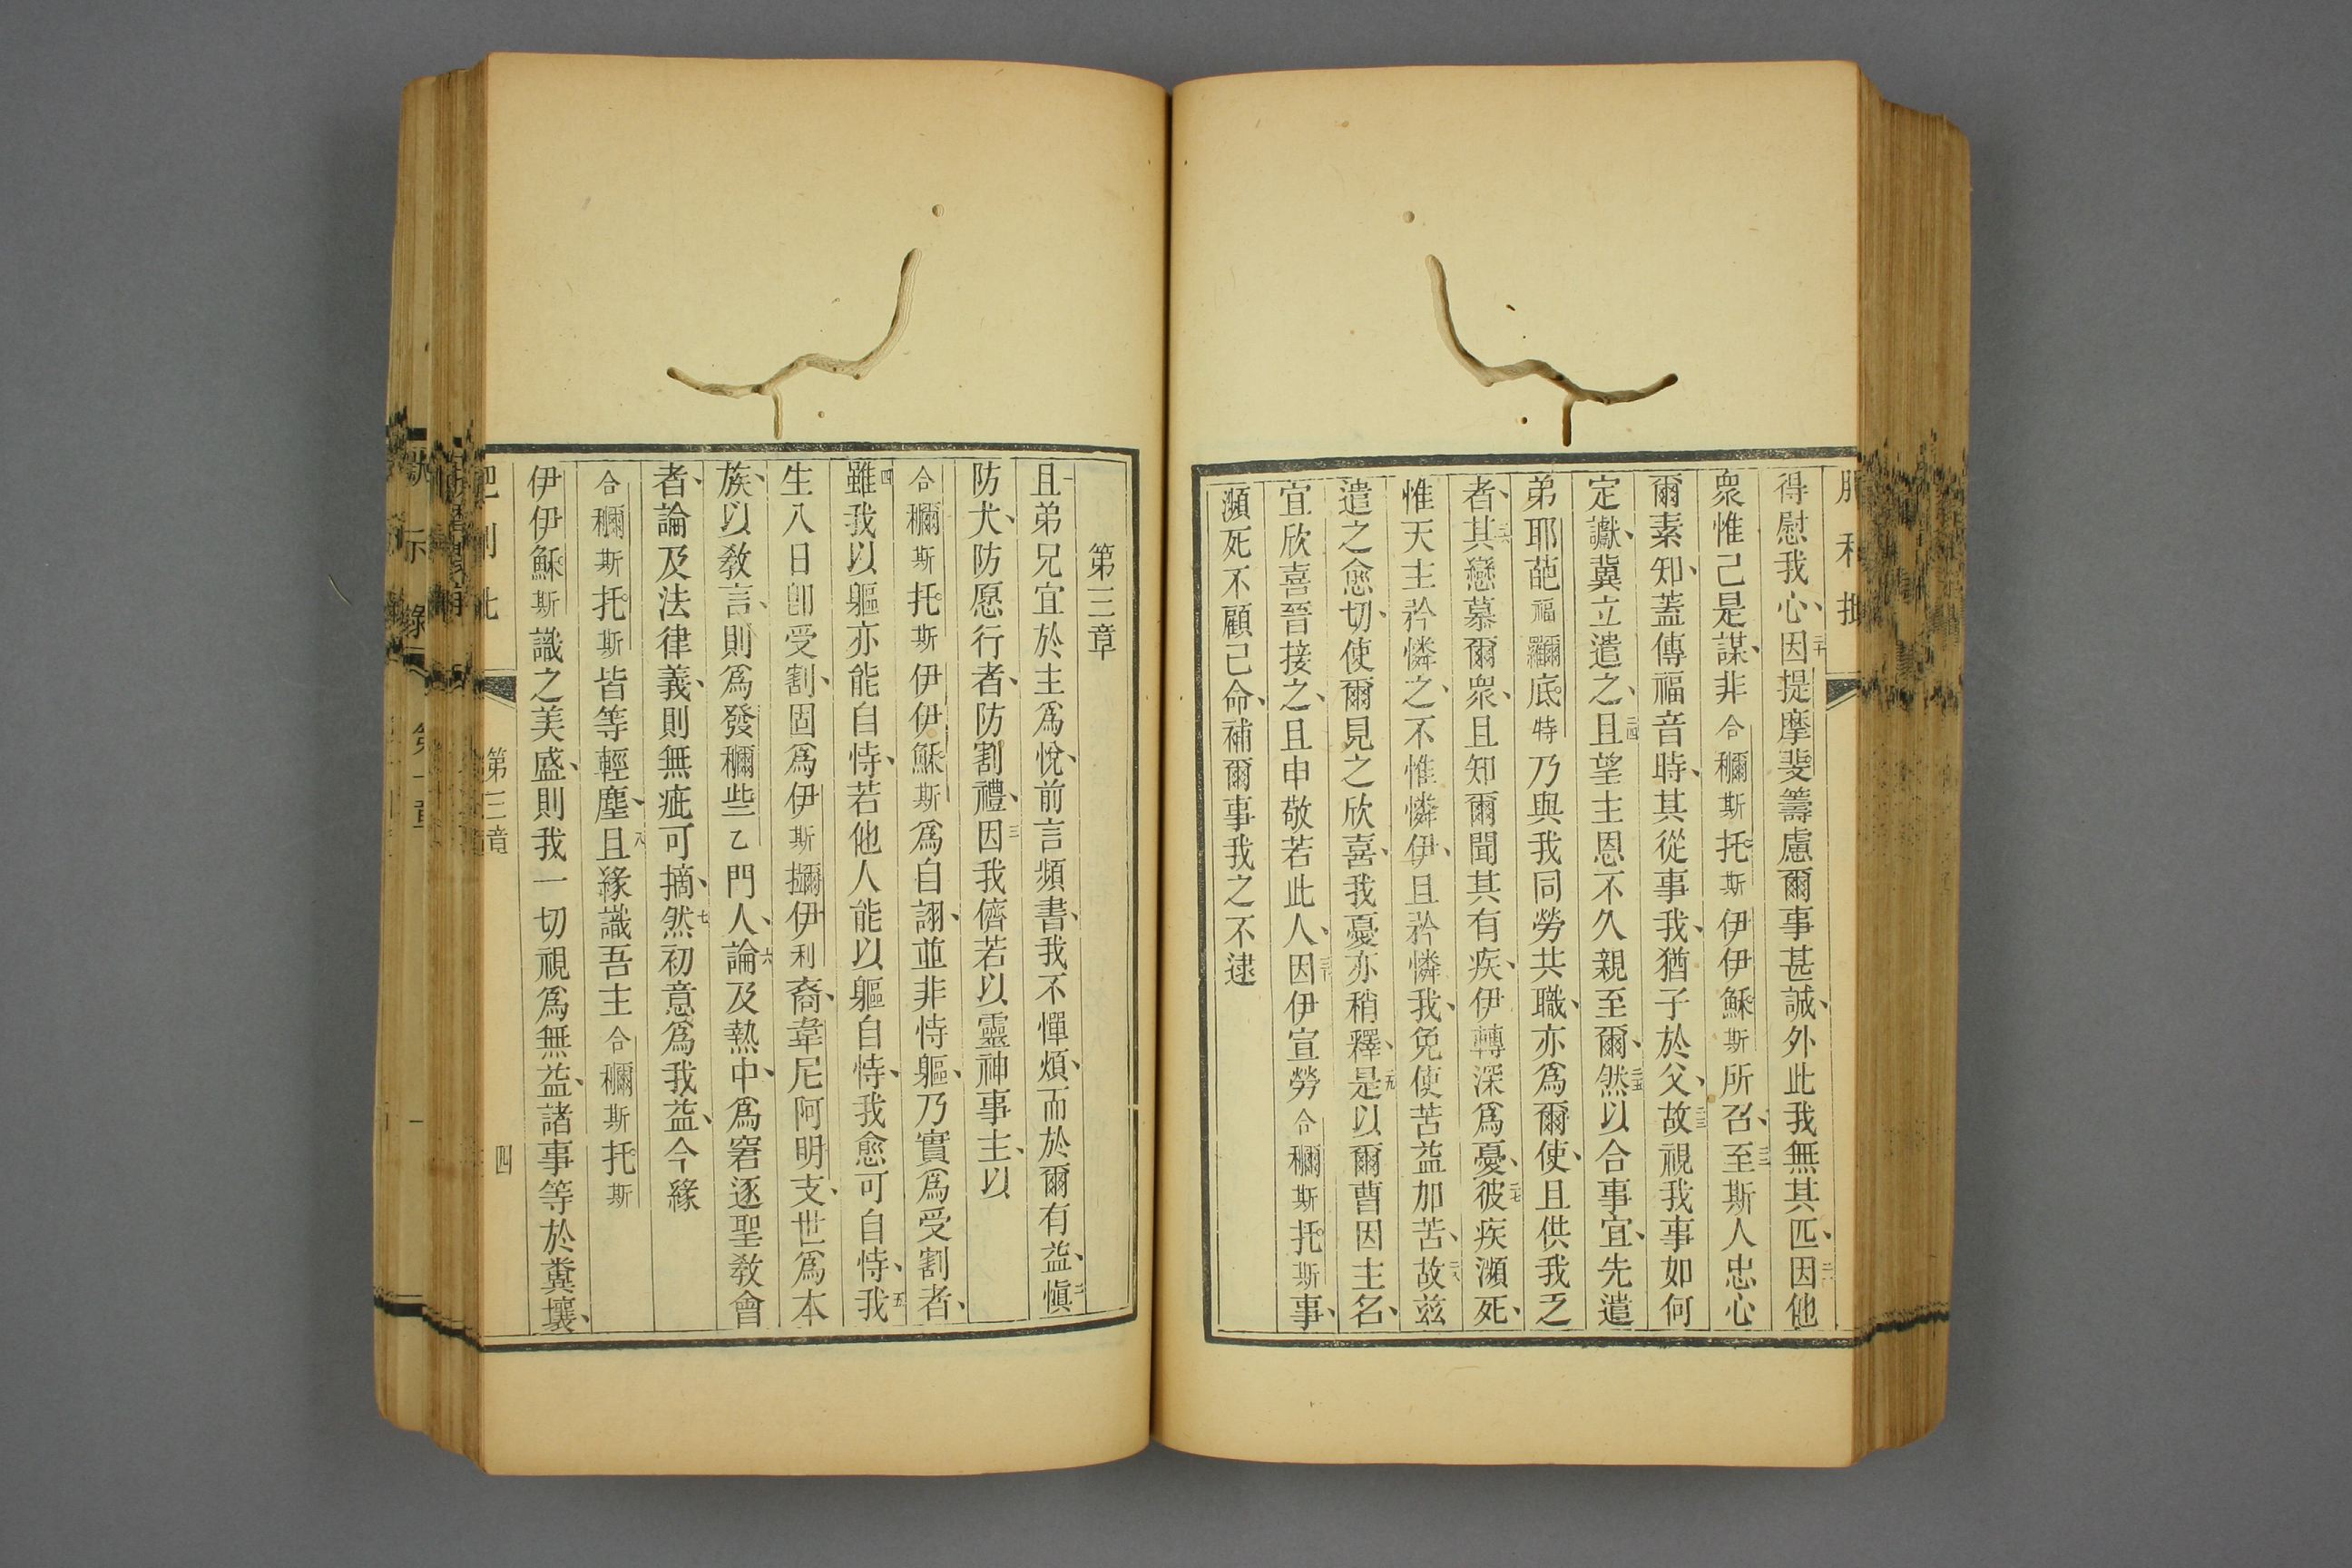 得慰我心、二十因提摩斐籌慮爾事甚誠、外此我無其匹、二一因他
衆惟己是謀、非合穪斯托斯伊伊穌斯所召、二二至斯人忠心
爾素知、蓋傳福音時、其從事我、猶子於父、二三故視我事如何
定讞、冀立遣之、二四且望主恩不久親至爾、二五然以合事宜、先遣
弟耶葩福囉底特乃與我同勞共職、亦爲爾使、且供我乏
者、二六其戀慕爾衆、且知爾聞其有疾、伊轉深爲憂、二七彼疾瀕死、
惟天主矜憐之、不惟憐伊、且矜憐我、免使苦益加苦、二八故茲
遣之愈切、使爾見之欣喜、我憂亦稍釋、二九是以爾曹因主名、
宜欣喜晉接之、且申敬若此人、三十因伊宣勞合穪斯托斯事、
瀕死不顧己命、補爾事我之不逮
第三章
一且弟兄宜於主爲悅、前言頻書、我不憚煩、而於爾有益、二愼
防犬、防慝行者、防割禮、三因我儕若以靈神事主、以
合穪斯托斯伊伊穌斯爲自詡、並非恃軀、乃實爲受割者、
四雖我以軀亦能自恃、若他人能以軀自恃、我愈可自恃、五我
生八日卽受割、固爲伊斯攡伊利裔、韋尼阿明支、世爲本
族、以敎言、則爲發穪些乙門人、六論及熱中、爲窘逐聖敎會
者、論及法律義、則無疵可摘、七然初意爲我益、今緣
合穪斯托斯皆等輕塵、八且緣識吾主合穪斯托斯
伊伊穌斯識之美盛、則我一切視爲無益、諸事等於糞壤、
第三章
四